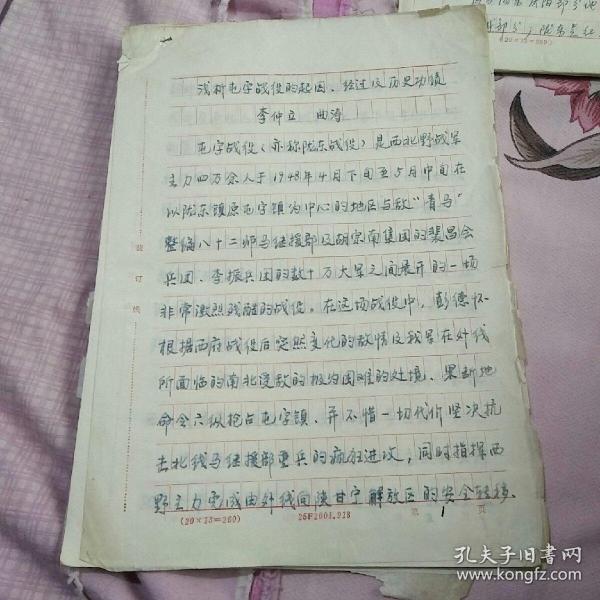 浅析屯字战役的起因、经过及历史功绩
李仲立 曲涛
屯字战役(亦称陇东战役)是西北野战军
主力四万余人于1948年4月下旬至5月中旬在
以陇东镇原屯字镇为中心的地区与敌“青马”
整编八十二师马继援部及胡宗南集团的裴昌会
兵团、李振兵团的数十万大军之间展开的一场
非常激烈残酷的战役。在这场战役中,彭德怀
根据西府战役后突然变化的敌情及我军在外线
所面临的南北受敌的极为困难的处境、果断地
命令六纵抢占屯字镇、并不惜一切代价坚决抗
击北线马继援部重兵的疯狂进攻,同时指挥西
野主力完成由外线向陕甘宁解放区的安全转移、
(20×13=260)
25F2001.928
第 1 页
装订线
部分,陇东老红
(20×13=260)
孔夫子旧书网
www.kongfz.com